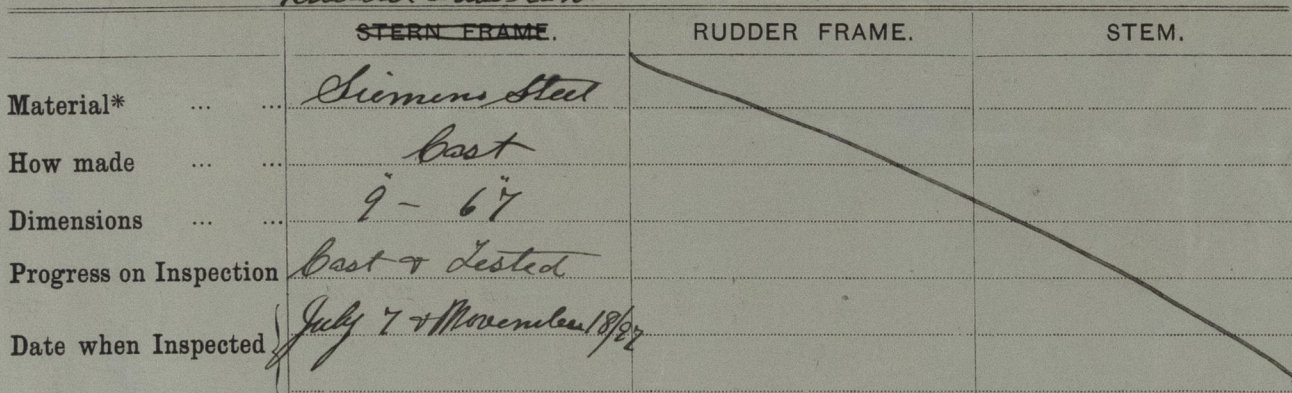 STERN FRAME. RUDDER FRAME. STEM.
Material* ... ... Siemens Steel
How made ... ... Cast
Dimensions ... ... 9" - 6"7
Progress on Inspection Cast & Tested
Date when Inspected July 7 & November 18/97